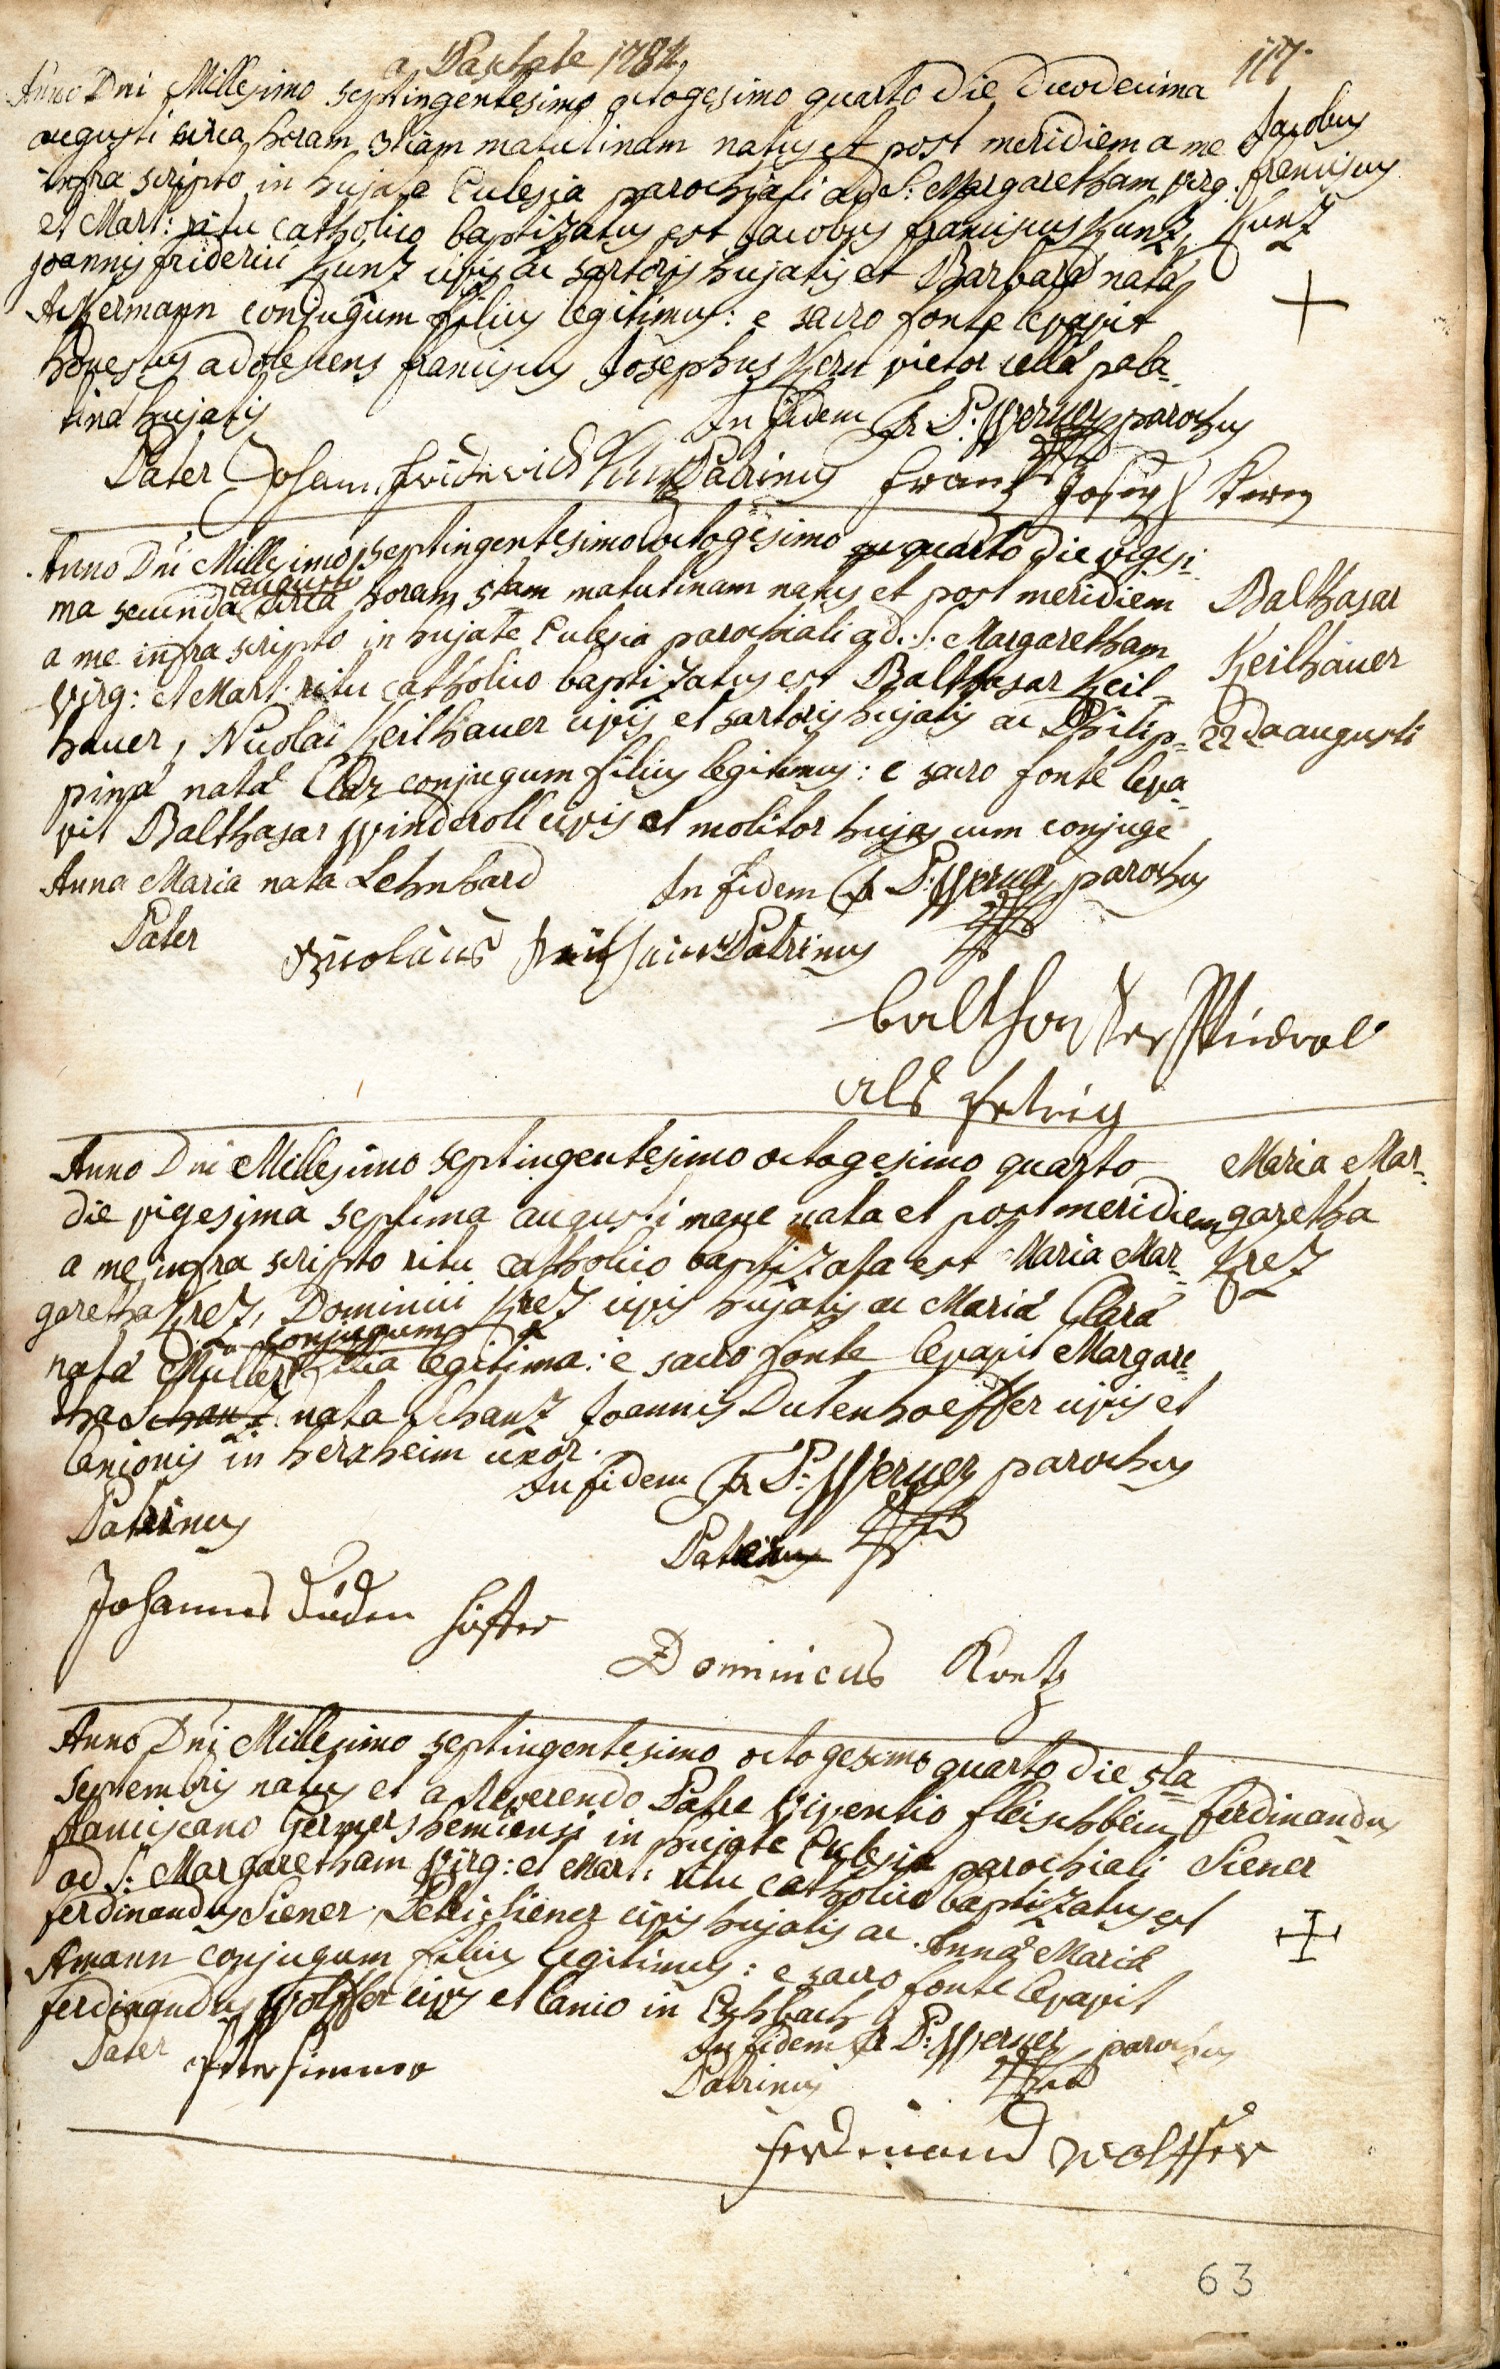 a Partate 1784
117.
Anno Dni Millesimo septingentesimo octogesimo quarto die duodecima
augusti circa horam 3tiam matutinam natus et post meridiem a me
infra scripto in hujate Eclesia parochiali ad S: Margaretham virg:
et Mart: ritu catholico baptizatus est Jacobus franciscus Kunz,
joannis friderici Kunz civis ac sartoris hujatis et Barbara nata
Ackermann conjugum filius legitimus: e sacro fonte levavit
honestus adolescens franciscus Josephus Kern vietor cella pala-
tina hujatis
In fidem Fr. P: Werner parochus
Jacobus
franciscus
Kunz
Pater Johann friderich Kunz Patrinus Frantz Joseph Kern
Anno Dni Millesimo septingentesimo octogesimo quarto die vigesi-
ma secunda augusti circa horam 5tam matutinam natus et post meridiem
a me infra scripto in hujate Eclesia parochiali ad S: Margaretham
virg: et Mart: ritu catholico baptizatus est Balthasar Keil-
hauer, Nicolai Keilhauer civis et sartoris hujatis ac Philip-
pina nata Clar conjugum filius legitimus: e sacro fonte leva-
vit Balthasar Winderoll civis et molitor hujas cum conjuge
Anna Maria nata Lehnhard
In fidem Fr. P: Werner parochus
Balthasar
Keilhauer
22da augusti
Pater Nicolaus Patrinus
als
Anno Dni Millesimo septingentesimo octogesimo quarto
die vigesima septima augusti mane nata et post meridiem
a me infra scripto ritu catholico baptizata est Maria Mar-
garetha Krez, Dominici Krez civis hujatis ac Maria Clara
nata Muller conjugum filia legitima: e sacro fonte levavit Margare-
tha Schanz nata Schanz Joannis Dutenhoeffer civis et
lanionis in herxheim uxor.
In fidem Fr. P: Werner parochus
Maria Mar-
garetha
Krez
Patrinus
Pater
Johannes düden höffer
Dominicus Kretz
Anno Dni Millesimo septingentesimo octogesimo quarto die 5ta
septembris natus et a Reverendo Patre Viventio fleischbein
franciscano Germershemiensi in hujate Eclesia parochiali
ad S: Margaretham Virg: et Mart: ritu catholico baptizatus est
ferdinandus Siener Petri Siener civis hujatis ac Anna Maria
Amann conjugum filius legitimus: e sacro fonte levavit
ferdinandus Wolffer civis et lanio in Eschbach
In fidem Fr. P: Werner parochus
ferdinandus
Siener
Pater
Patrinus
ferdinand wolffer
63